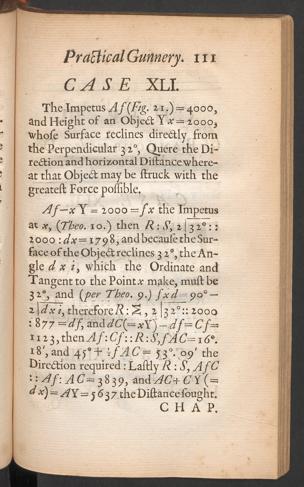 Practical Gunnery. 111
CASE XLI.
The Impetus Af (Fig. 21.) = 4000,
and Height of an Object Yx = 2000,
whose Surface reclines directly from
the Perpendicular 32°, Quere the Di-
rection and horizontal Distance where-
at that Object may be struck with the
greatest Force possible.
Af—xY = 2000 = fx the Impetus
at x, (Theo. 10.) then R : S, 2|32° : :
2000 : dx = 1798, and because the Sur-
face of the Object reclines 32°, the An-
gle dxi, which the Ordinate and
Tangent to the Point x make, must be
32°, and (per Theo. 9.) fxd = 90° —
2|dxi, therefore R : Σ, 2|32° : : 2000
: 877 = df, and dC (= xY) — df = Cf =
1123, then Af : Cf : : R : S, fAC = 16°.
18′, and 45° + ½ fAC = 53°. 09′ the
Direction required : Lastly R : S, AfC
: : Af : AC = 3839, and AC + CY (=
dx) = AY = 5637 the Distance sought.
CHAP.